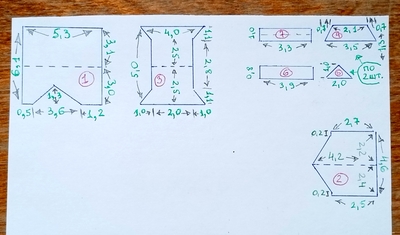 5,3
6,1
3,1
3,0
1
1,3
0,5
3,6
1,2
4,0
5,0
2,5
2,5
3
1,1
2,8
1,1
1,0
2,0
1,0
7
3,3
6
3,9
0,7
2,1
0,7
4
3,5
5
2,0
ПО
2 ШТ.
2,7
0,2
4,2
2,2
2,4
4,6
2
0,2
2,5